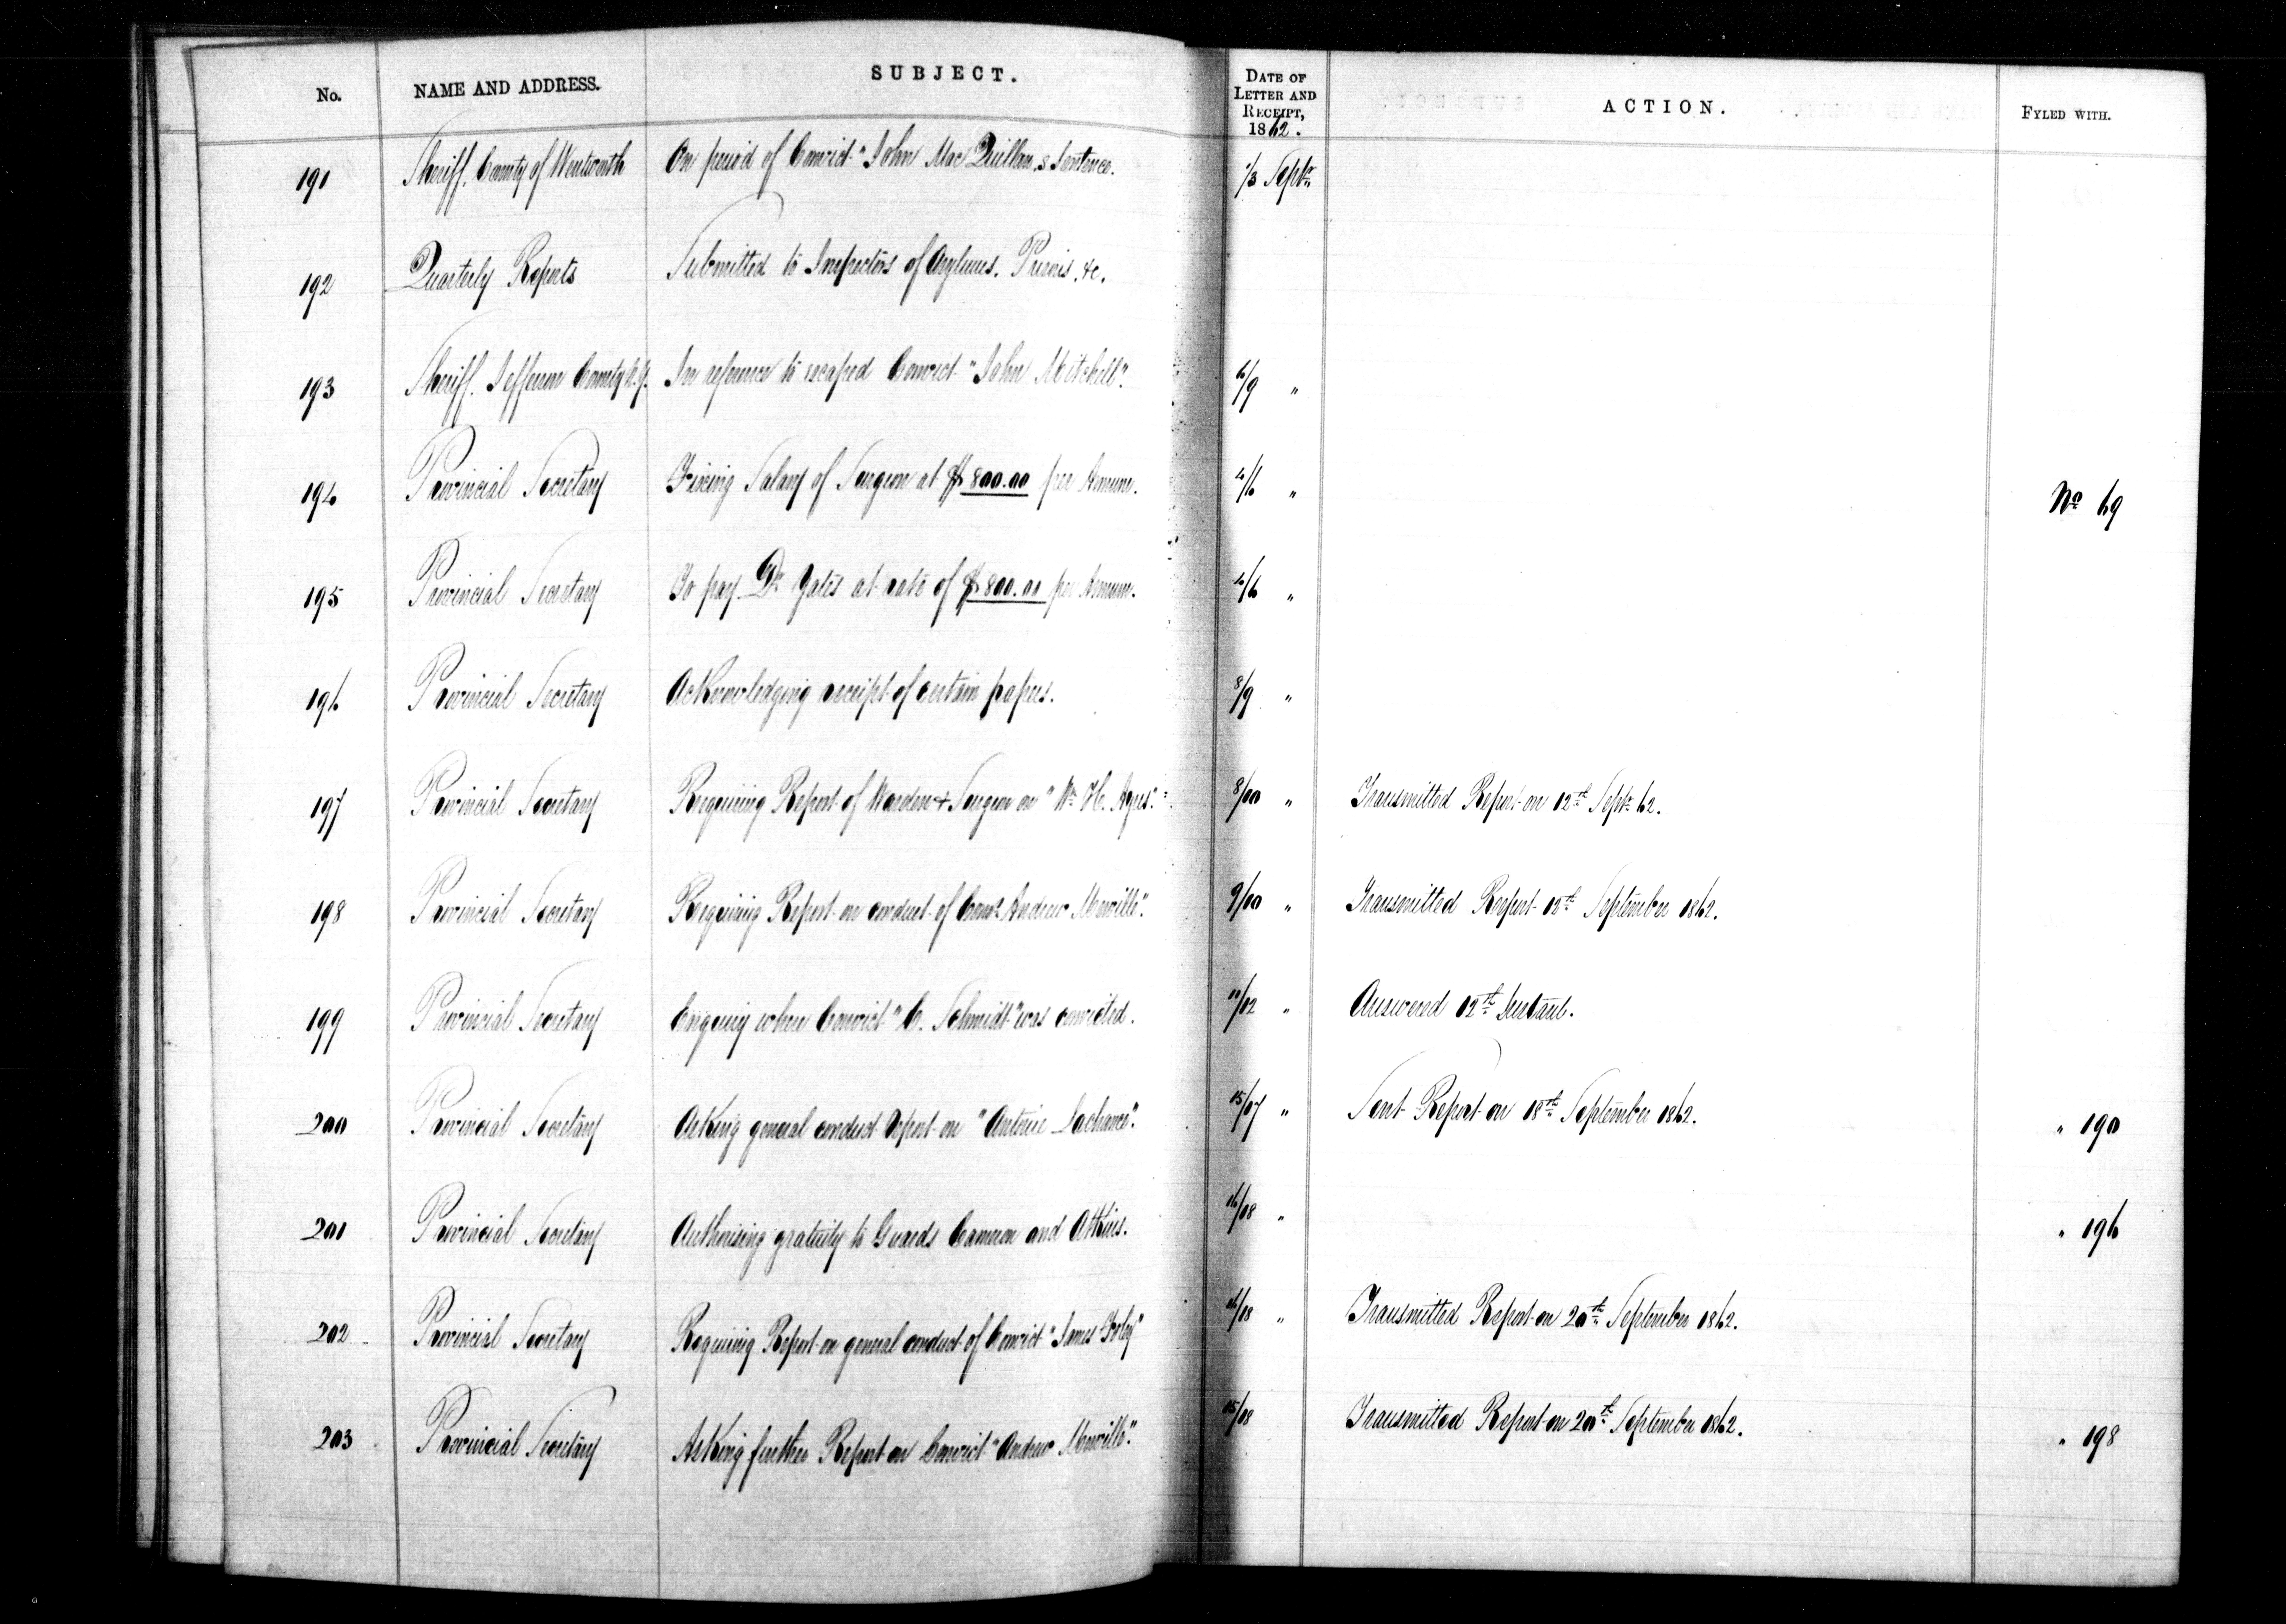 No. NAME AND ADDRESS. SUBJECT. DATE OF LETTER AND RECEIPT, 1862. ACTION. FYLED WITH.
191 Sheriff. County of Wentworth On period of Convict "John Mac Quillan,s Sentence. 1/3 Septr
192 Quarterly Reports Submitted to Inspectors of Asylums. Prisons. &c.
193 Sheriff. Jefferson County N.Y. In reference to escaped Convict "John Mitchell". 6/9 "
194 Provincial Secretary Fixing Salary of Surgeon at $800.00 per Annum. 4/6 " No 69
195 Provincial Secretary To pay Dr Yates at rate of $800.00 per Annum. 4/6 "
196 Provincial Secretary Acknowledging receipt of certain papers. 8/9 "
197 Provincial Secretary Requiring Report of Warden & Surgeon on "Wm H. 8/10 " Transmitted Report on 12th Septr 62.
198 Provincial Secretary Requiring Report on conduct of Convt Andrew 9/10 " Transmitted Report 12th September 1862.
199 Provincial Secretary Enquiry when Convict "C. Schmidt" was convicted. 11/12 " Answered 12th Instant.
200 Provincial Secretary Asking general conduct Report on "Antoine Lachance". 15/17 " Sent Report on 18th September 1862. " 190
201 Provincial Secretary Authorising gratuity to Guards Cameron and Atkins. 16/18 " " 196
202 Provincial Secretary Requiring Report on general conduct of Convict "James Foley" 16/18 " Transmitted Report on 20th September 1862.
203 Provincial Secretary Asking further Report on Convict "Andrew 15/18 Transmitted Report on 20th September 1862. " 198